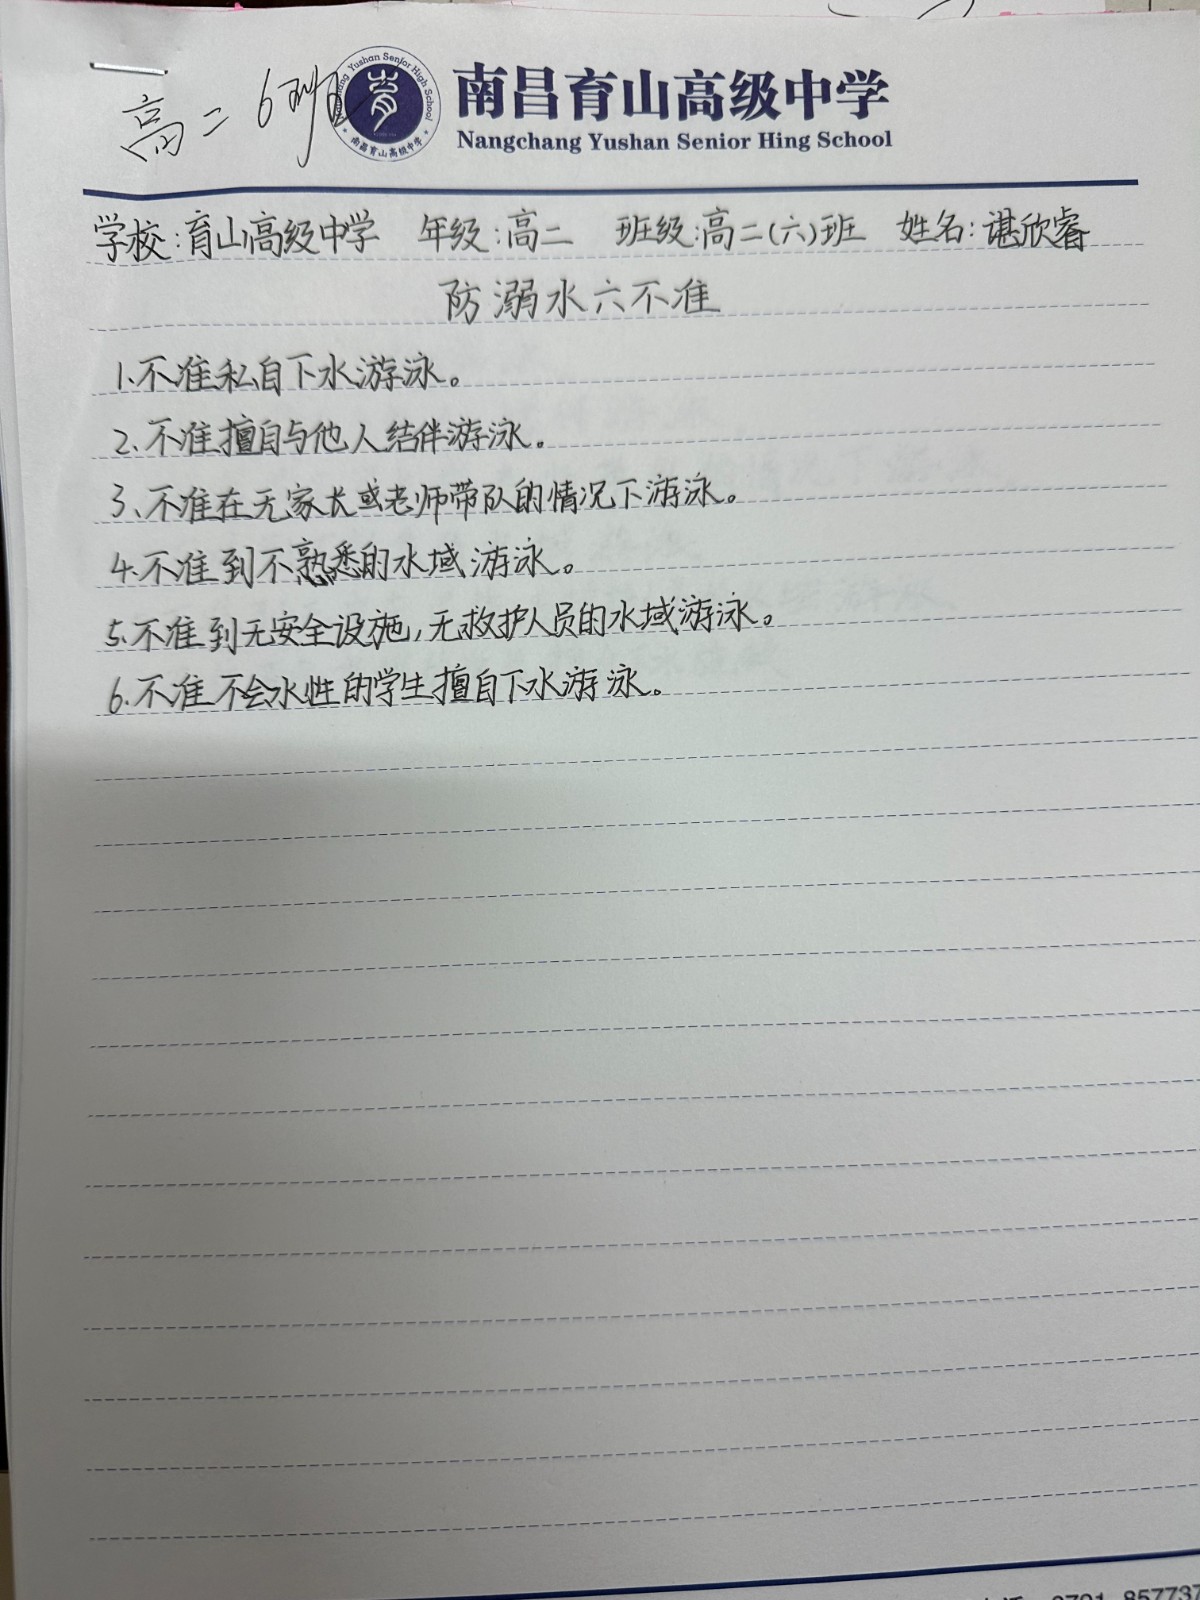 高二6班
Nangchang Yushan Senior High School
育
南昌育山高级中学
南昌育山高级中学
Nangchang Yushan Senior Hing School
学校:育山高级中学 年级:高二 班级:高二(六)班 姓名:谌欣睿
防溺水六不准
1.不准私自下水游泳。
2.不准擅自与他人结伴游泳。
3.不准在无家长或老师带队的情况下游泳。
4.不准到不熟悉的水域游泳。
5.不准到无安全设施,无救护人员的水域游泳。
6.不准不会水性的学生擅自下水游泳。
0791 857737